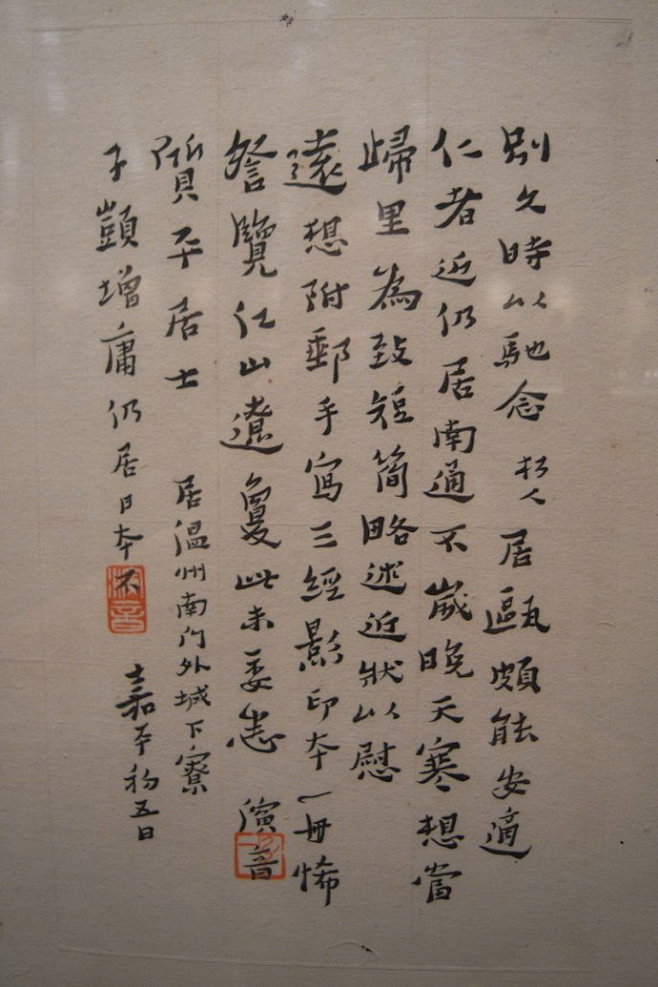 別久時以馳念朽人居甌頗能安適
仁者近仍居南通不歲晚天寒想當
歸里為致短簡略述近狀以慰
遠想附郵手寫三經影印本一冊悕
詧覽江山遼敻此未委悉 演音
質平居士 居溫州南門外城下寮
子顗增庸仍居日本不 嘉平初五日